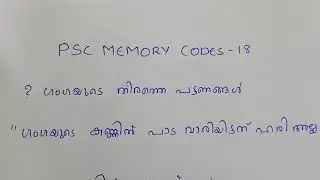 PSC MEMORY CODES - 18
? ഗംഗയുടെ തീരത്തെ പട്ടണങ്ങൾ
"ഗംഗയുടെ കണ്ണിൽ പാട വാരിയിട്ടന് ഹരി അല